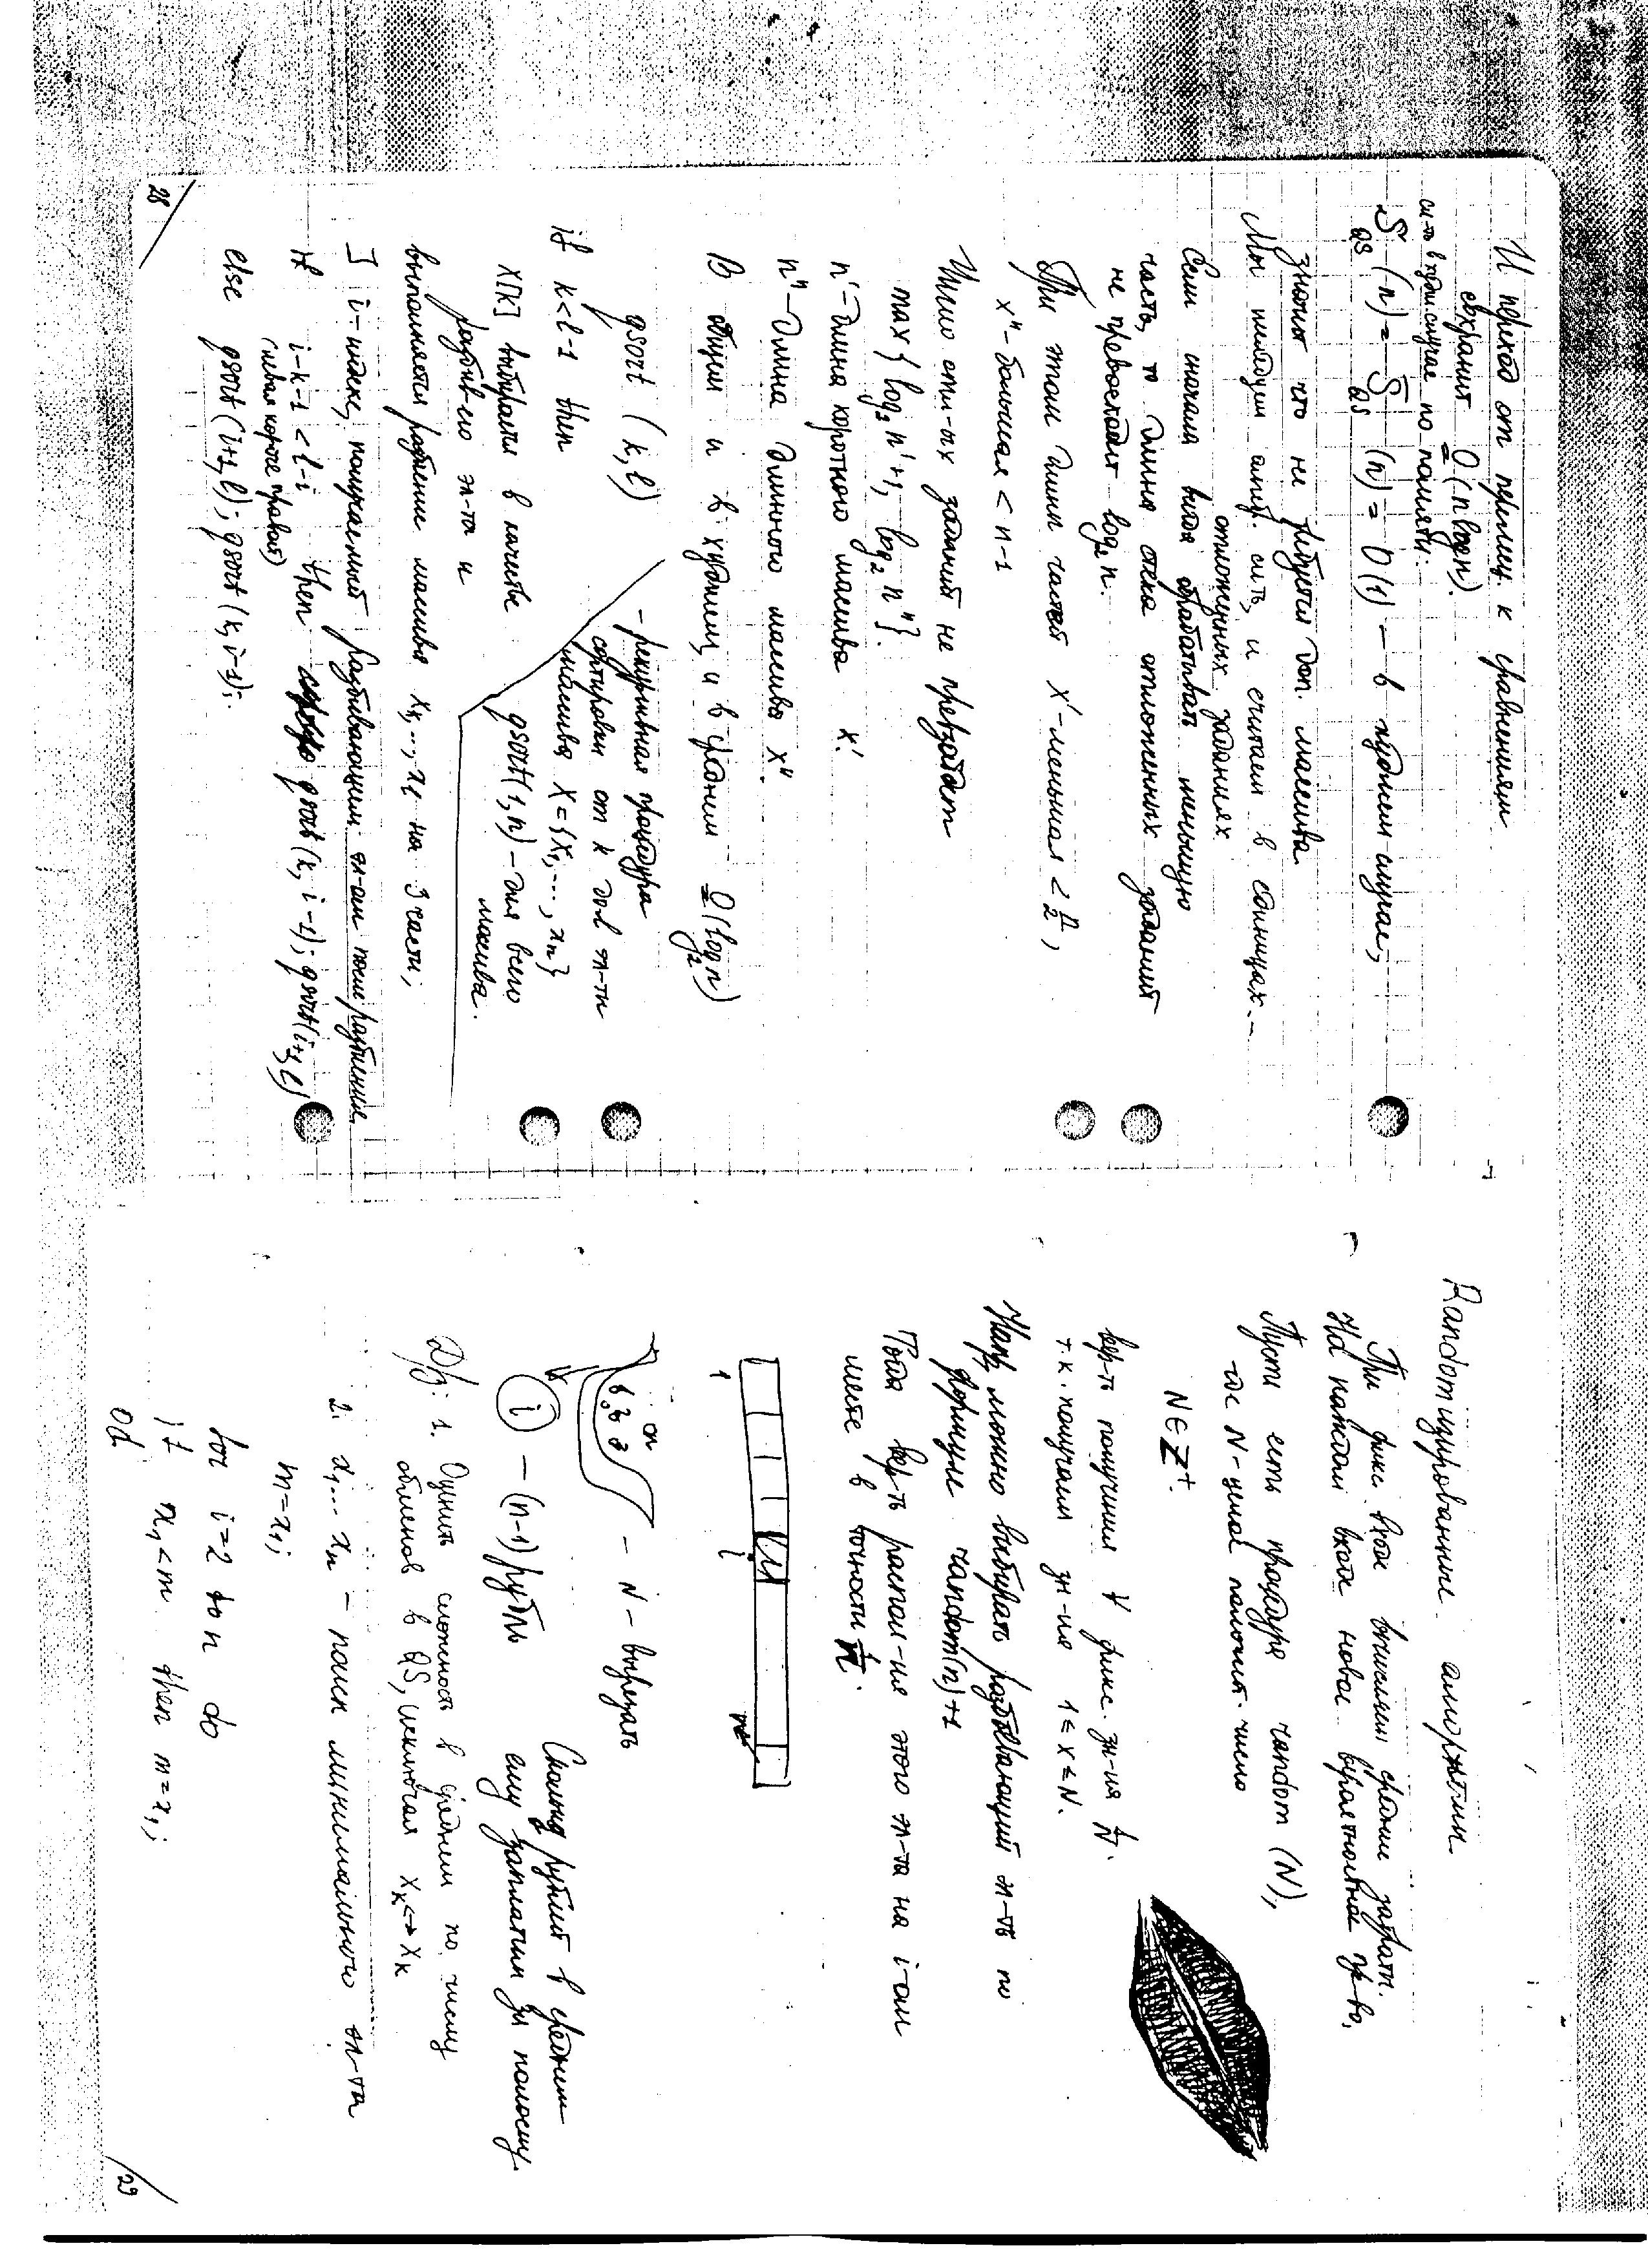 И переход от перемещ. к сравнениям
сохранит O(n log n).
сл-ть в худш. случае по памяти:
S̃_QS (n) = S̄_QS (n) = O(1) – в худшем случае,
значит что не требуем доп. массива
Мы исследуем алг. сл-ть, и считаем в единицах –
отложенных заданиях
Если сначала будем обрабатывать меньшую
часть, то длина стека отложенных заданий
не превосходит log₂ n.
При этом длины частей x' - меньшая < n/2,
x'' - большая < n-1
Число отл-ых заданий не превзойдет
max { log₂ n'+1, log₂ n'' }.
n' - длина короткого массива x'.
n'' - длина длинного массива x''.
В общем и в худшем, и в среднем O(log₂ n)
qsort (k, l) – рекурсивная процедура
сортировки от k до l эл-ты
массива X = {x₁, ..., xₙ}
qsort(1, n) – для всего
массива.
if k<l-1 then
x[k] выбираем в качестве
разбив-го эл-та и
выполняется разбиение массива xₖ, ..., xₗ на 3 части;
I i-индекс, получаемый разбивающим эл-ом после разбиения
If i-k-1 < l-i then qsort(k, i-1); qsort(i+1, l)
(левая короче правой)
else qsort(i+1, l); qsort(k, i-1);
28
Randomизированные алгоритмы
При фикс. входе вычисляем средние затраты.
На каждом входе новое вероятностное пр-во,
Пусть есть процедура random (N),
где N - целое положит. число
N ∈ Z⁺.
вер-ть получения ∀ фикс. зн-ия 1/N.
т.к. получаем зн-ия 1 ≤ x ≤ N.
Напр, можно выбирать разбивающий эл-т по
формуле random(n)+1
Тогда вер-ть распол-ия этого эл-та на i-ом
месте в точности 1/n.
1 i n
– N – вырезать
i – (n-1) рубль
Сколько рублей в среднем
ему заплатим за полосу.
Д/з: 1. Оценить сложность в среднем по числу
обменов в QS, исключая xₖ ↔ xₖ
2. x₁ ... xₙ – поиск минимального эл-та
m = x₁;
for i=2 to n do
if xᵢ < m then m = xᵢ;
od
29